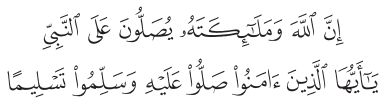 إِنَّ ٱللَّهَ وَمَلَٰٓئِكَتَهُۥ يُصَلُّونَ عَلَى ٱلنَّبِىِّ
يَٰٓأَيُّهَا ٱلَّذِينَ ءَامَنُوا۟ صَلُّوا۟ عَلَيْهِ وَسَلِّمُوا۟ تَسْلِيمًا